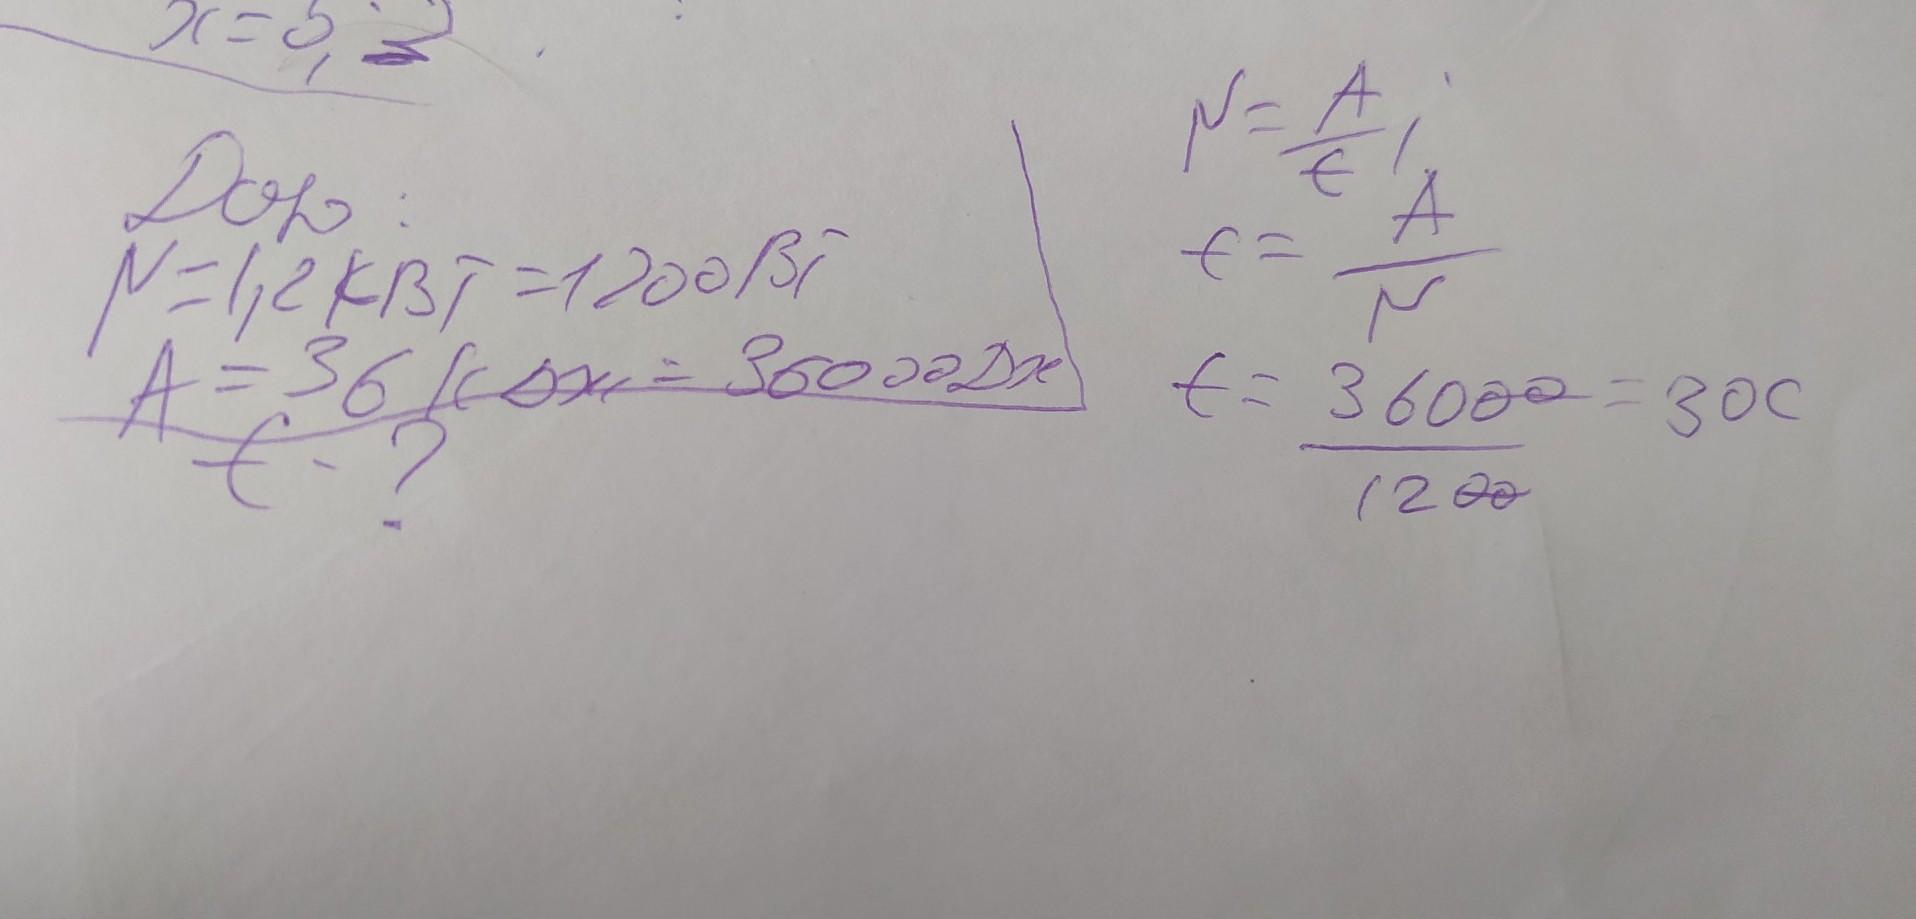 x = 5,2
Дор:
N = 1,2 кВт = 1200 Вт
A = 36 к Дж = 36000 Дж
t - ?
N = A/t ;
t = A/N
t = 36000/1200 = 30 с